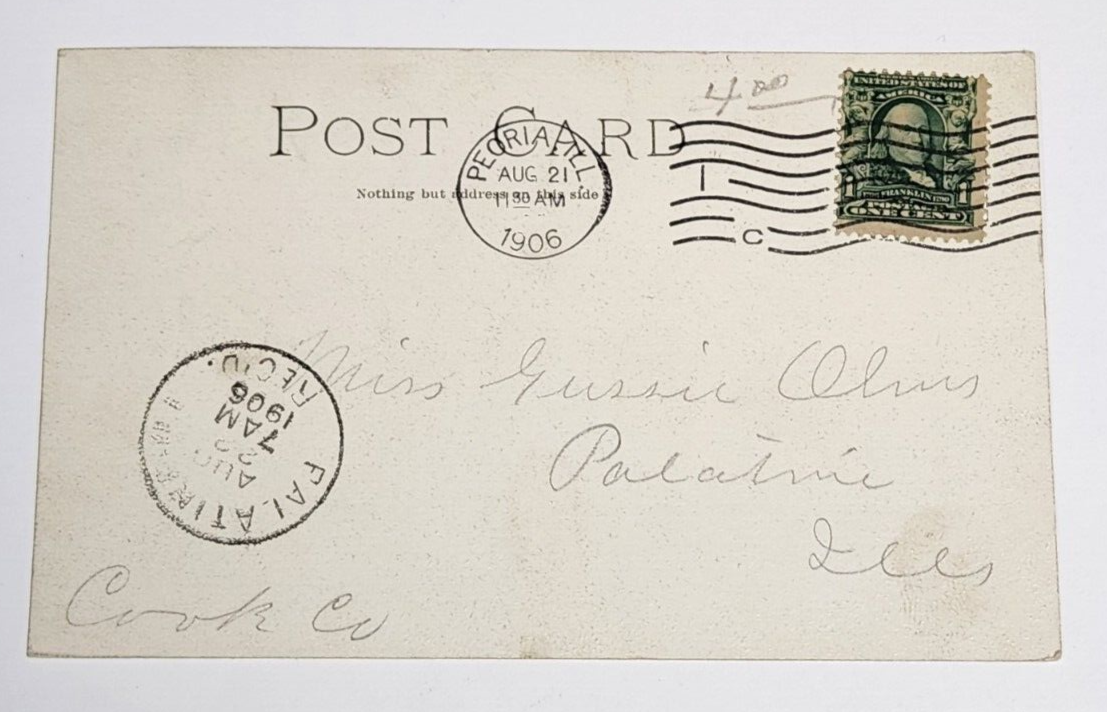 4.00
POST CARD
Nothing but address on this side
PEORIA, ILL.
AUG 21
11 30 AM
1906
1
C
UNITED STATES OF
AMERICA
FRANKLIN
POSTAGE
ONE CENT
Miss Gussie Olms
Palatine
Ills
Cook Co
PALATINE
AUG
22
7 AM
1906
REC'D.